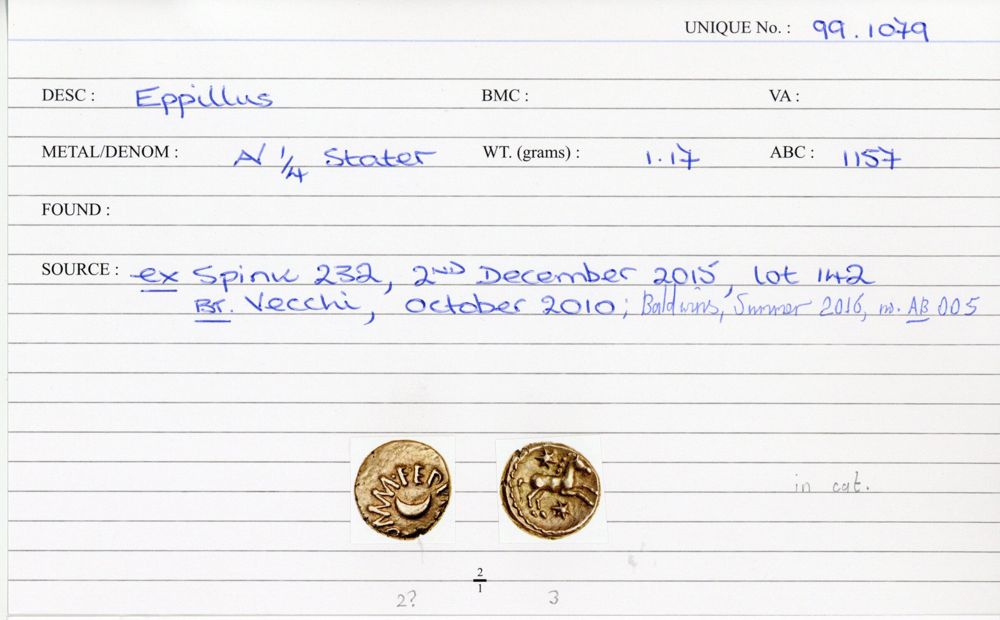 UNIQUE No. : 99.1079
DESC : Eppillus BMC : VA :
METAL/DENOM : AV 1/4 Stater WT. (grams) : 1.17 ABC : 1157
FOUND :
SOURCE : ex Spink 232, 2ND December 2015, lot 142
Br. Vecchi, October 2010; Baldwins, Summer 2016, no. AB 005
in cat.
2
1
2? 3